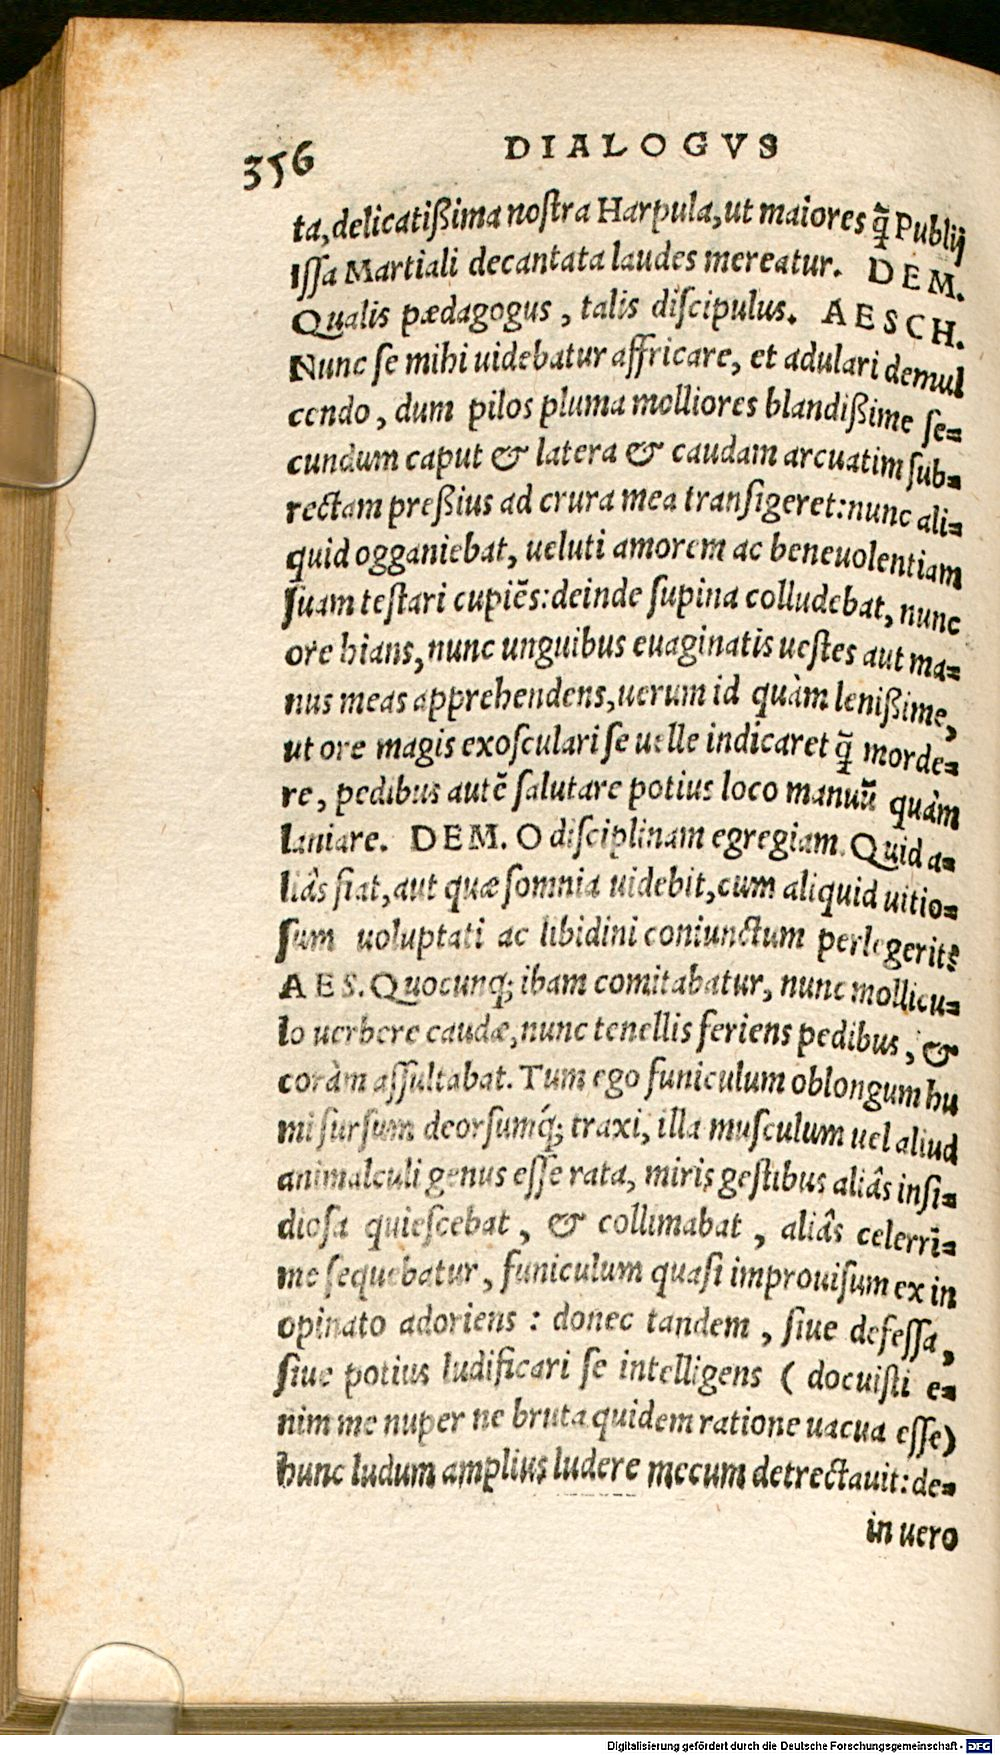 356 DIALOGVS
ta, delicatißima noſtra Harpula, ut maiores q̃ Publij
Iſſa Martiali decantata laudes mereatur. DEM.
Qualis pædagogus, talis diſcipulus. AESCH.
Nunc ſe mihi uidebatur affricare, et adulari demul
cendo, dum pilos pluma molliores blandißime ſe=
cundum caput & latera & caudam arcuatim ſub=
rectam preßius ad crura mea tranſigeret: nunc ali=
quid ogganiebat, ueluti amorem ac beneuolentiam
ſuam teſtari cupiẽs: deinde ſupina colludebat, nunc
ore hians, nunc unguibus euaginatis ueſtes aut ma=
nus meas apprehendens, uerum id quàm lenißime,
ut ore magis exoſculari ſe uelle indicaret q̃ morde=
re, pedibus autẽ ſalutare potius loco manuũ quàm
laniare. DEM. O diſciplinam egregiam. Quid a=
liâs fiat, aut quæ ſomnia uidebit, cum aliquid uitio=
ſum uoluptati ac libidini coniunctum perlegerit?
AES. Quocunq; ibam comitabatur, nunc mollicu=
lo uerbere caudæ, nunc tenellis feriens pedibus, &
coràm aſſultabat. Tum ego funiculum oblongum hu
mi ſurſum deorſumq́; traxi, illa muſculum uel aliud
animalculi genus eſſe rata, miris geſtibus aliâs inſi=
dioſa quieſcebat, & collimabat, aliâs celerri=
me ſequebatur, funiculum quaſi improuiſum ex in
opinato adoriens: donec tandem, ſiue defeſſa,
ſiue potius ludificari ſe intelligens ( docuiſti e=
nim me nuper ne bruta quidem ratione uacua eſſe)
hunc ludum amplius ludere mecum detrectauit: de=
in uero
Digitalisierung gefördert durch die Deutsche Forschungsgemeinschaft - DFG